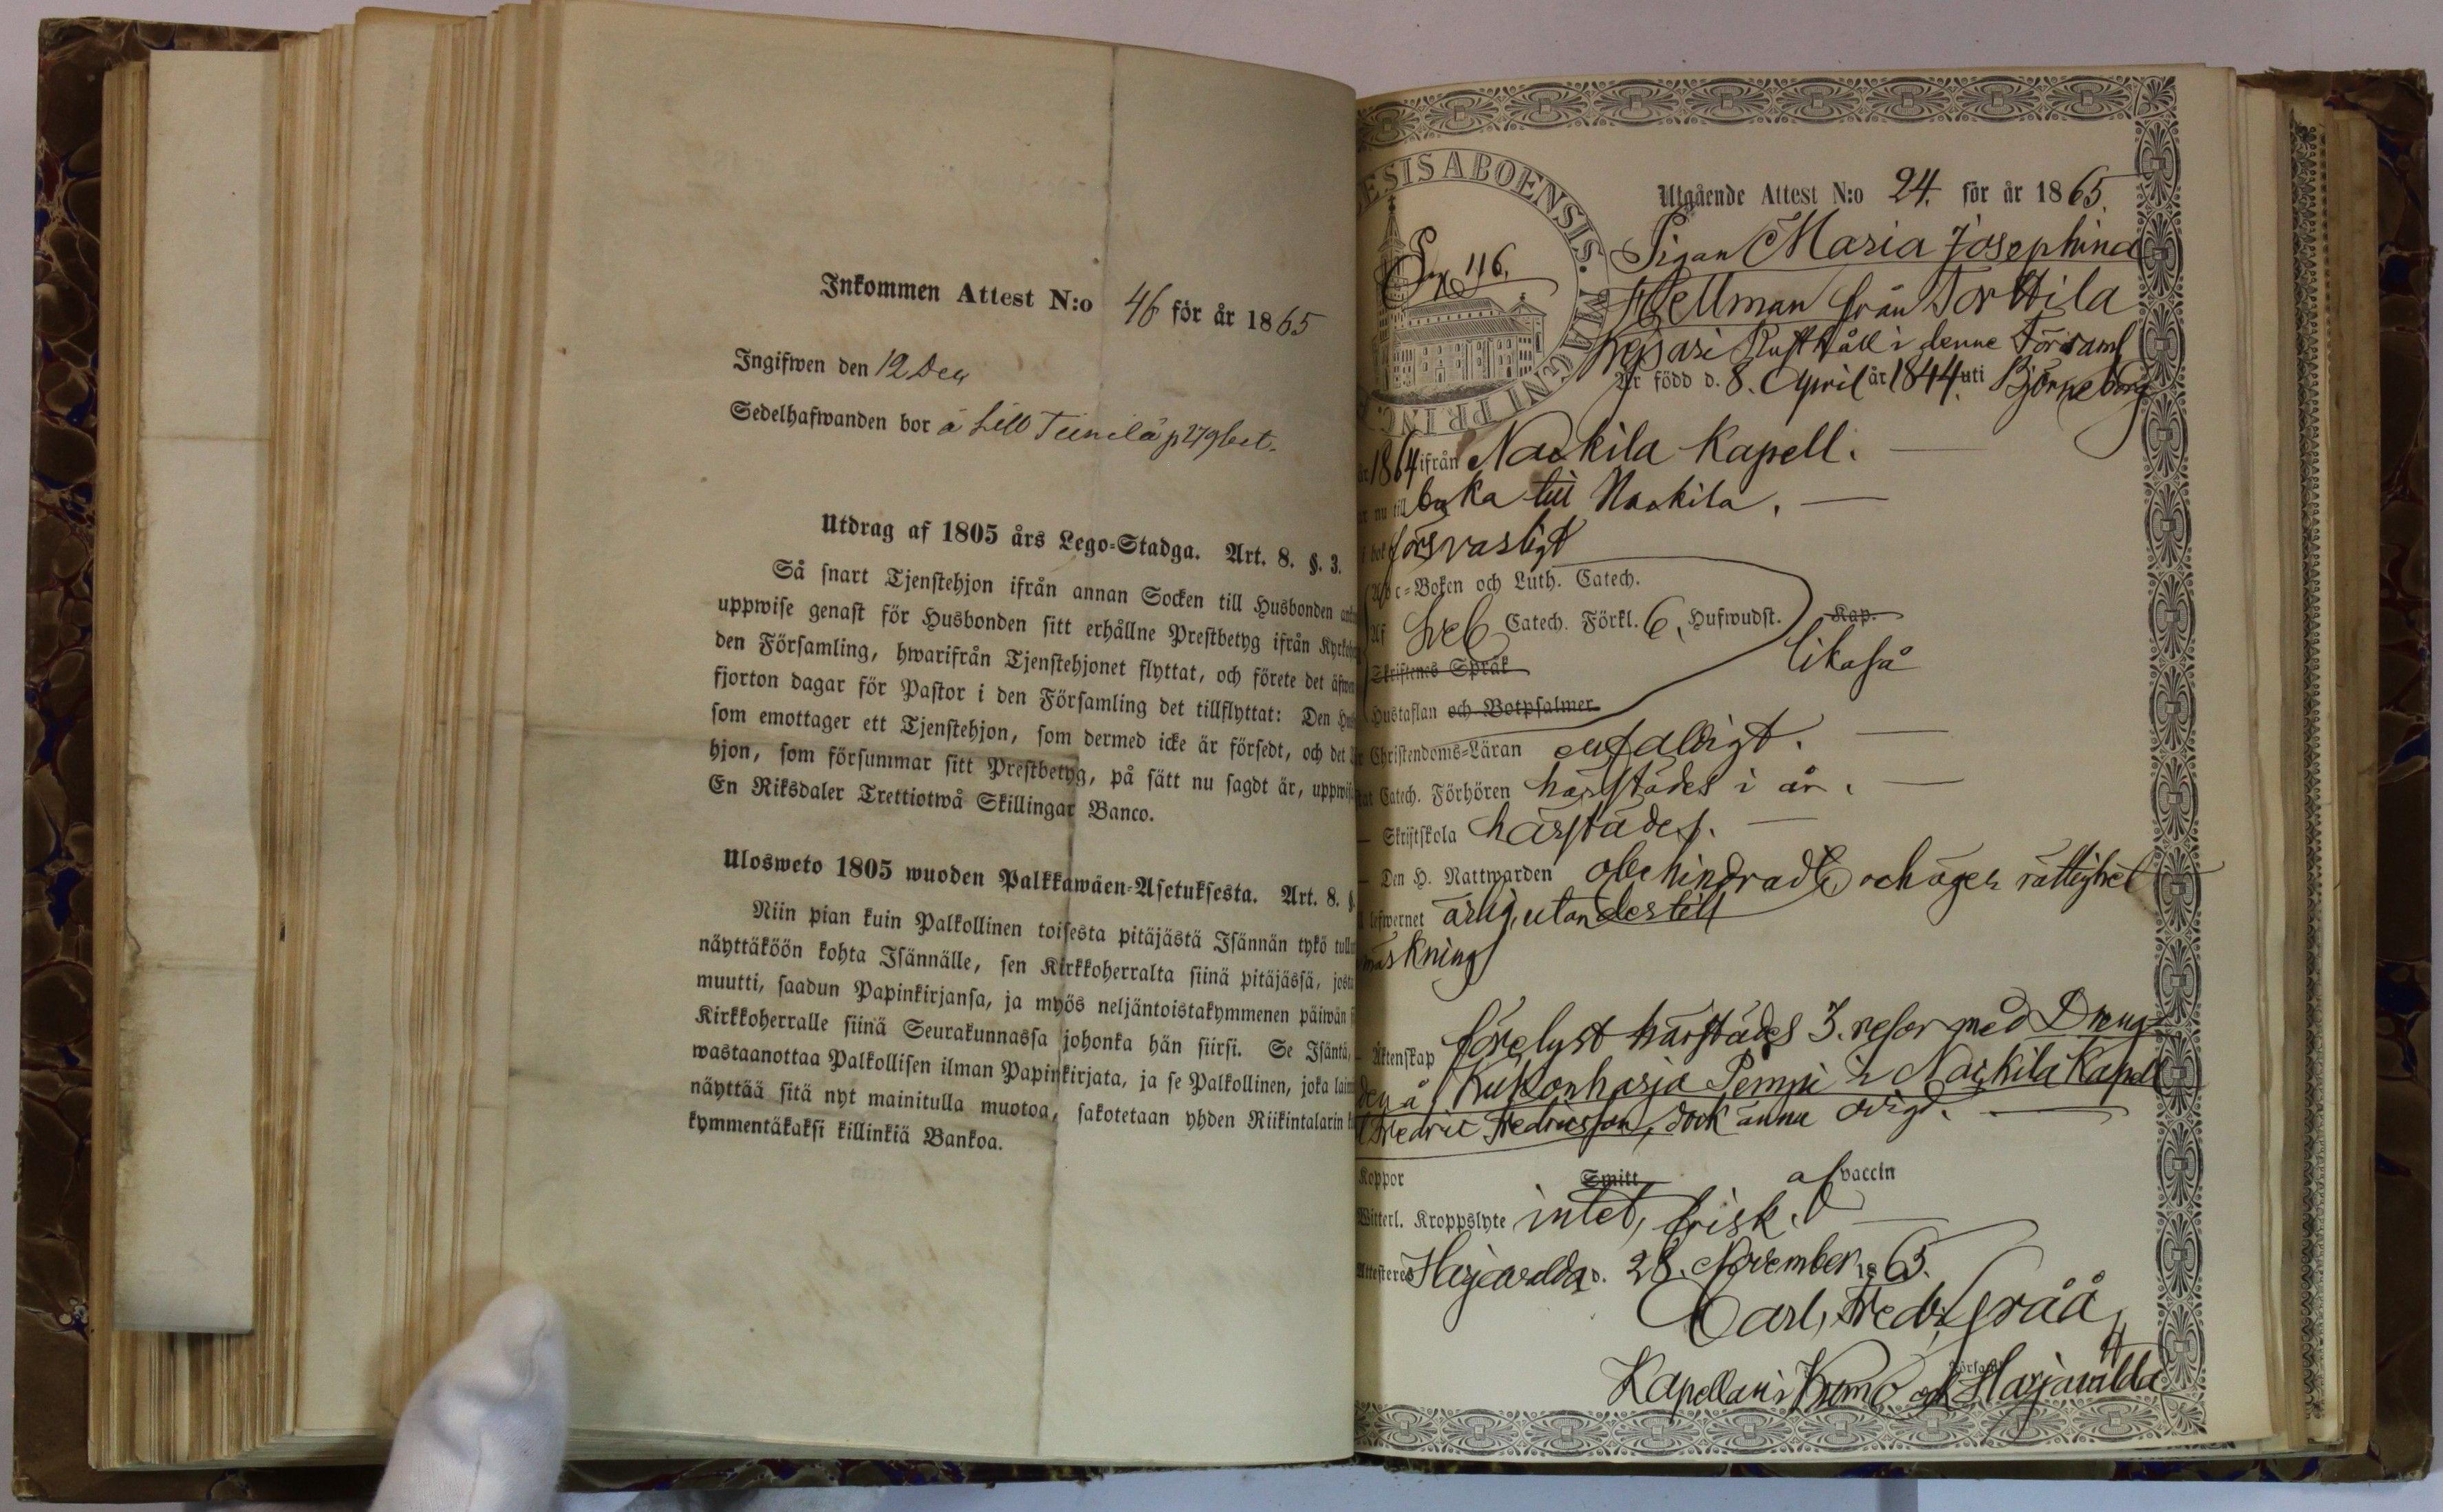 Inkommen Attest N:o 46 för år 1865
Ingifwen den 12 Dec
Sedelhafwanden bor å Lill Teinilä p 279 best.
Utdrag af 1805 års Lego-Stadga. Art. 8. §. 3.
Så snart Tjenstehjon ifrån annan Socken till Husbonden
uppwise genast för Husbonden sitt erhållne Prestbetyg ifrån
den Församling, hwarifrån Tjenstehjonet flyttat, och förete det
fjorton dagar för Pastor i den Församling det tillflyttat: Den
som emottager ett Tjenstehjon, som dermed icke är försedt, och det
hjon, som försummar sitt Prestbetyg, på sätt nu sagdt är,
En Riksdaler Trettiotwå Skillingar Banco.
Ulosweto 1805 wuoden Palkkawäen-Asetuksesta. Art. 8.
Niin pian kuin Palkollinen toisesta pitäjästä Isännän tykö
näyttäköön kohta Isännälle, sen Kirkkoherralta siinä pitäjässä,
muutti, saadun Papinkirjansa, ja myös neljäntoistakymmenen päiwän
Kirkkoherralle siinä Seurakunnassa johonka hän siirsi. Se Isäntä,
wastaanottaa Palkollisen ilman Papinkirjata, ja se Palkollinen, joka
näyttää sitä nyt mainitulla muotoa, sakotetaan yhden Riikintalarin
kymmentäkaksi killinkiä Bankoa.
ESIS ABOENSIS. MAGNI PRINC
Pag 116.
Utgående Attest N:o 24. för år 1865.
Pigan Maria Josephina
Hellman från Torttila
Kepari Rusthåll i denne Församl
Är född d. 8. April år 1844. uti Björneborg
år 1864 ifrån Nackila Kapell.
nu till baka till Nackila.
i bok försvarligt
Abc-Boken och Luth. Catech.
Af Sveb Catech. Förkl. 6, Hufwudst. Kap.
likaså
Skriftenes Språk
Hustaflan och Botpsalmer
Christendoms-Läran enfaldigt.
Catech. Förhören härstädes i år.
Skriftskola härstädes.
Den H. Nattwarden obehindrad och äger rättighet
lefwernet ärlig, utan des till
Äktenskap förelyst härstädes 3. resor med Dreng
en å Kukonharja Pempi i Nackila Kapell
Fredric Fredricsson, dock ännu ovigd.
Koppor Smitt af vaccin
Witterl. Kroppslyte intet, frisk.
Attesteres Harjavalda d. 28. November 1865.
Carl Fredr Gråå
Kapellan i Kumo och Harjavalda Församl